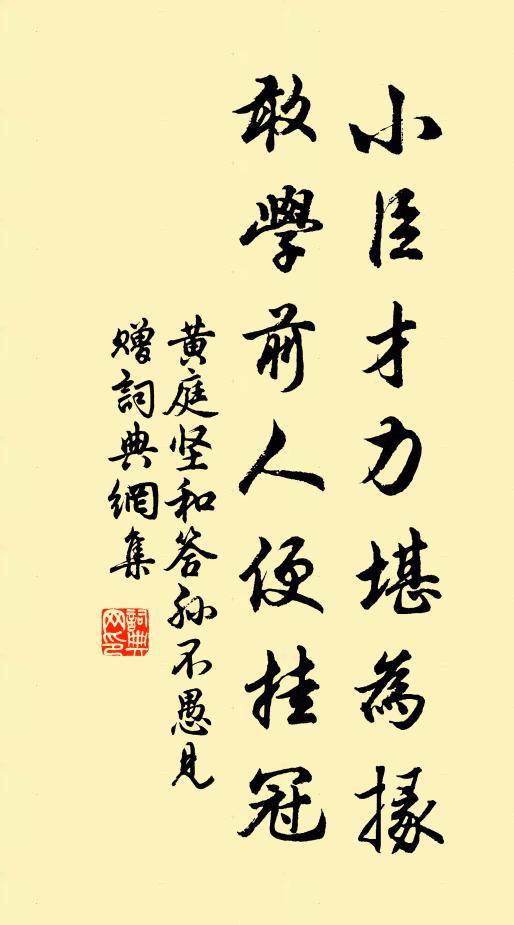 小臣才力堪為掾
敢學前人便挂冠
黄庭坚和答孙不愚見
赠詞典網集
詞典
网印